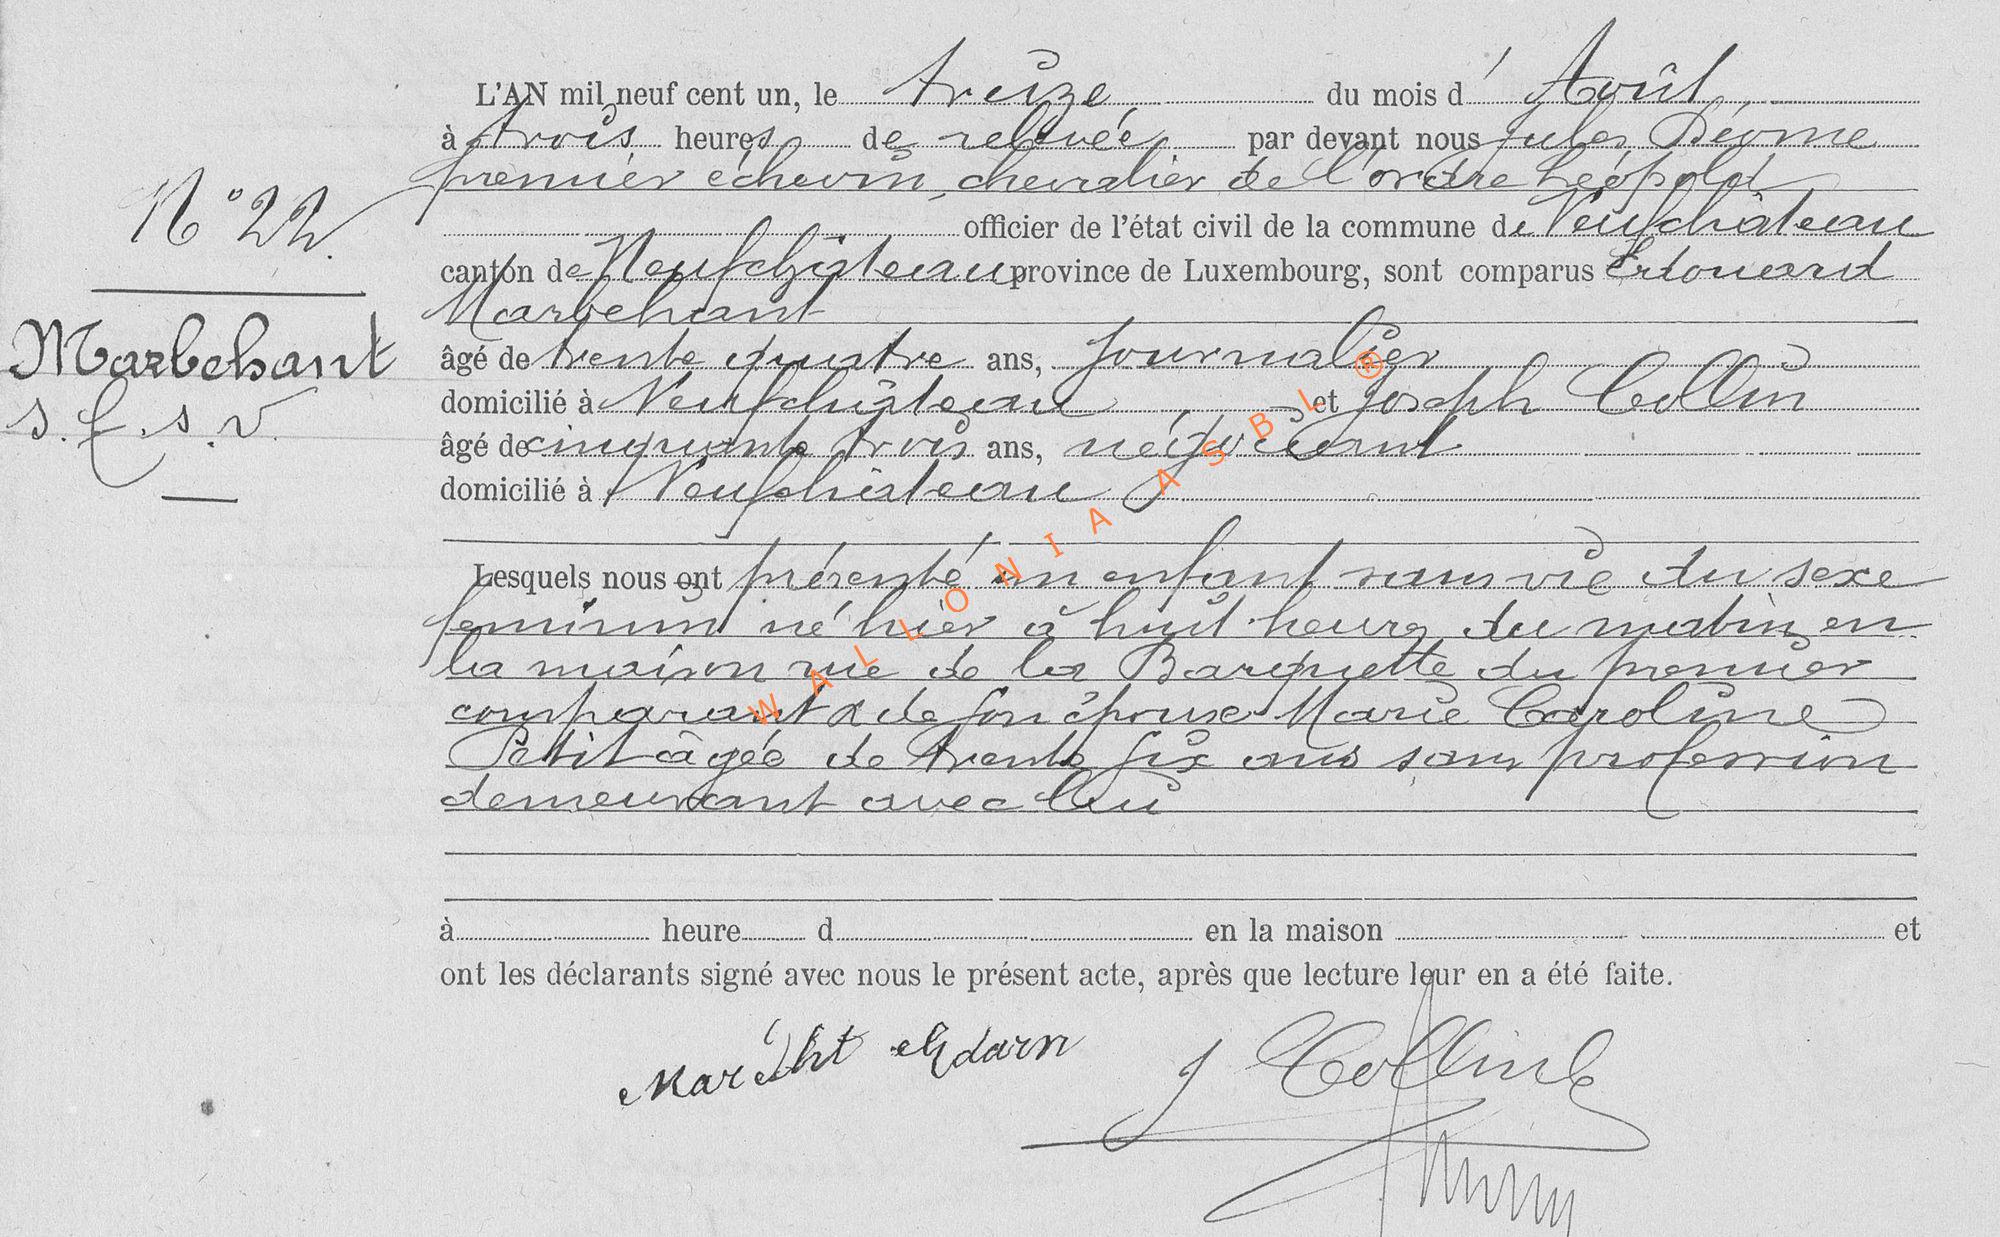 N° 22.
Marbehant
s. f. s. v.
L'AN mil neuf cent un, le treize du mois d' Août
à trois heures de relevée par devant nous Jules Déome
premier échevin, chevalier de l'ordre Léopold
officier de l'état civil de la commune de Neufchâteau
canton de Neufchâteau province de Luxembourg, sont comparus Edouard
Marbehant
âgé de trente quatre ans, journalier
domicilié à Neufchâteau et Joseph Collin
âgé de cinquante trois ans, négociant
domicilié à Neufchâteau
Lesquels nous ont présenté un enfant sans vie du sexe
feminin né hier à huit heures du matin en
la maison rue de la Barquette du premier
comparant & de son épouse Marie Caroline
Petit âgée de trente six ans sans profession
demeurant avec lui
à heure d en la maison et
ont les déclarants signé avec nous le présent acte, après que lecture leur en a été faite.
J Collin
WALLONIA ASBL ®